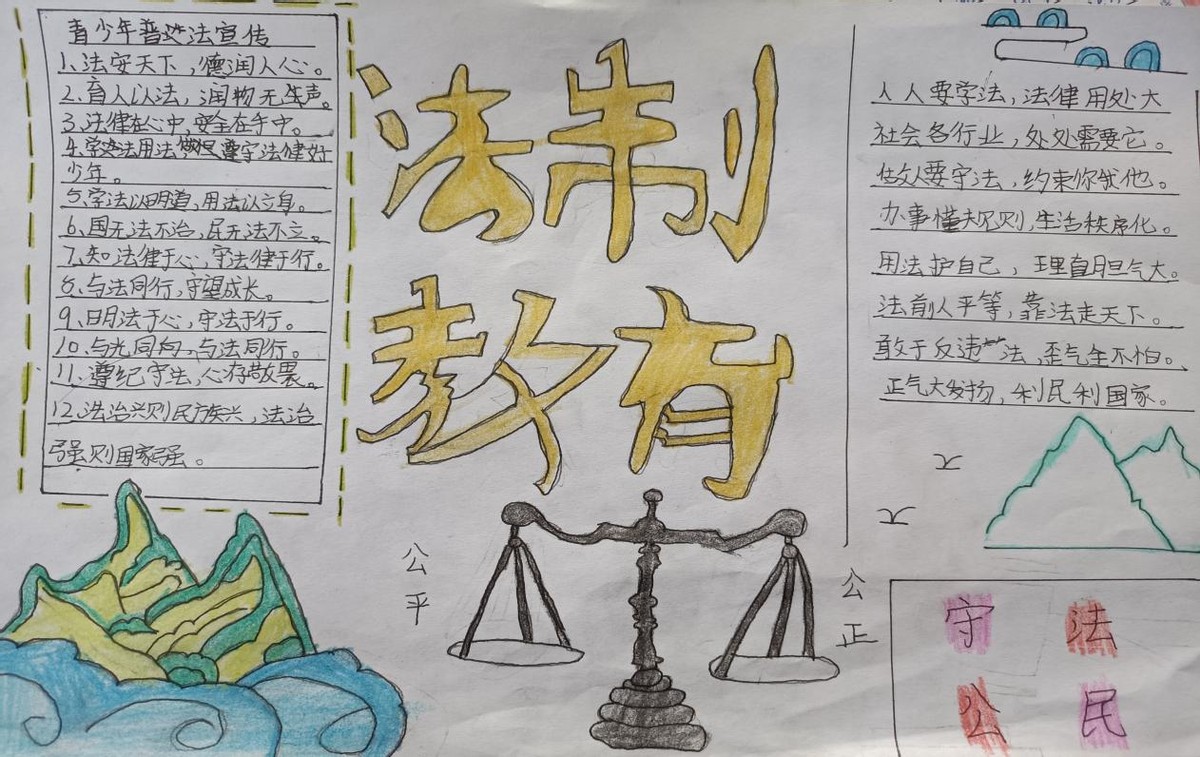 青少年普法宣传
1.法安天下，德润人心。
2.育人以法，润物无声。
3.法律在心中，安全在手中。
4.学法用法做遵守法律好
少年。
5.学法以明道，用法以立身。
6.国无法不治，民无法不立。
7.知法律于心，守法律于行。
8.与法同行，守望成长。
9.明法于心，守法于行。
10.与光同向，与法同行。
11.遵纪守法，心存敬畏。
12.法治兴则民族兴，法治
强则国家强。
法制
教育
公平
公正
人人要学法，法律用处大
社会各行业，处处需要它。
做人要守法，约束你我他。
办事懂规则，生活秩序化。
用法护自己，理直胆气大。
法前人平等，靠法走天下。
敢于反违法，歪气全不怕。
正气大发扬，利民利国家。
守法
公民